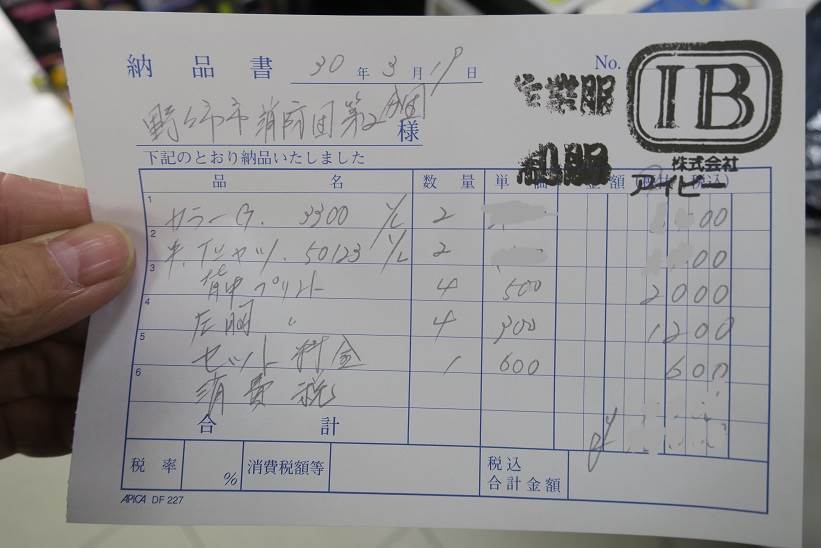 納品書 30年3月19日 No.
作業服 IB
野々市市消防団第2分団 様
制服 株式会社
下記のとおり納品いたしました アイビー
品名 数量 単価 金額 税込)
1 カラーG. 3300 2 00
2 半.Tシャツ. 50123 2 00
3 背中プリント 4 500 2000
4 左胸 〃 4 300 1200
5 セット料金 1 600 600
6 消費税
合計
税率 % 消費税額等 税込合計金額
APICA DF 227